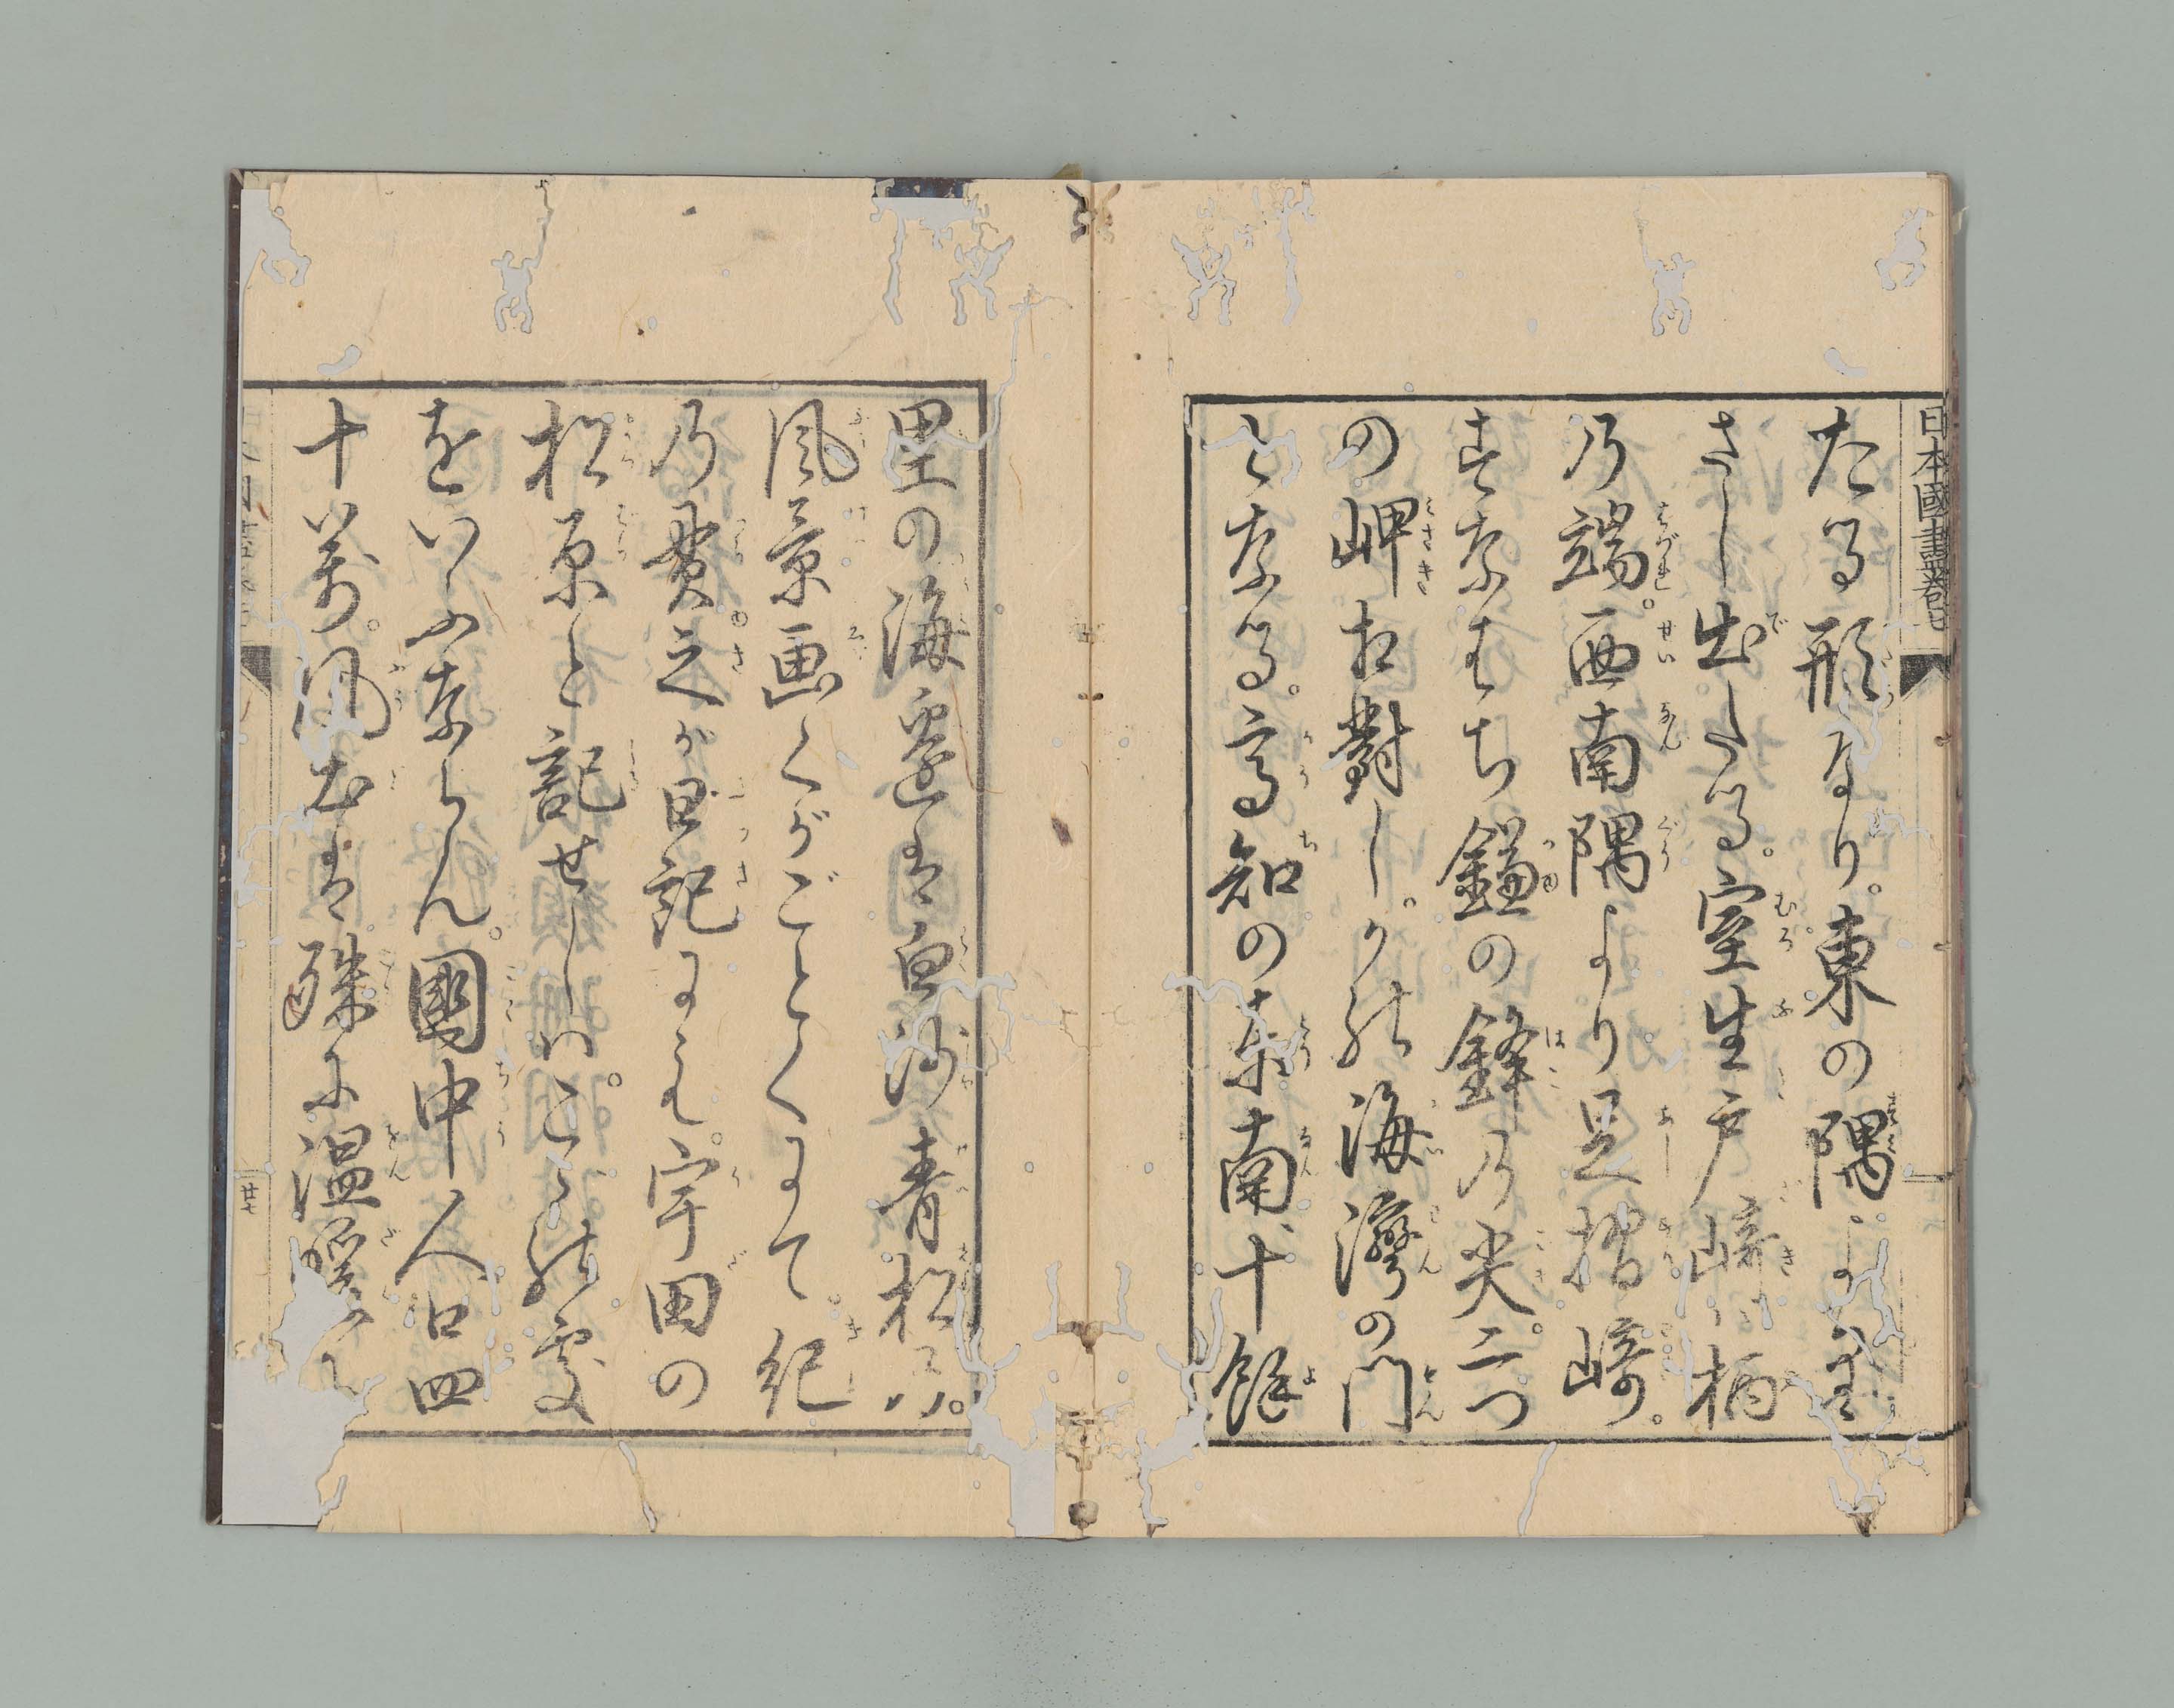 日本國盡卷
たる形なり。東の隅より
さし出したる。室生戸崎ハ柄
乃端。西南隅より足摺崎。
すなはち鎌の鋒乃尖。二つ
の岬相對し。かの海灣の門
となる。高知の東南、十餘
里の海邊は白沙青松ニハ。
風景画くがごとくにて。紀
乃貫之が日記にも。宇田の
松原と記せしハ。この處
をいふならん。國中人口四
十万。風土は殊に温暖
廿七